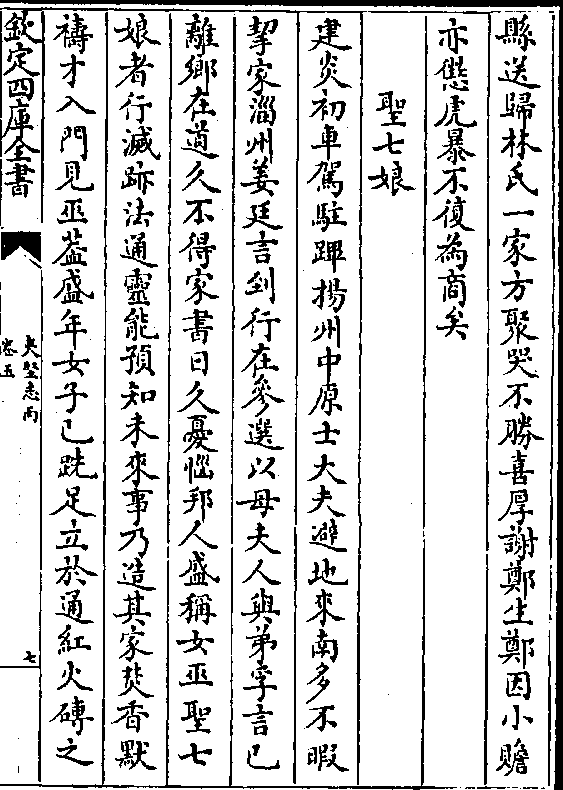 縣送歸林氏一家方聚哭不勝喜厚謝鄭生鄭因小贍
亦懲虎暴不復為商矣
聖七娘
建炎初車駕駐蹕揚州中原士大夫避地來南多不暇
挈家淄州姜廷言到行在參選以母夫人與弟孚言已
離鄉在道久不得家書日久憂惱邦人盛稱女巫聖七
娘者行滅跡法通靈能預知未來事乃造其家焚香默
禱才入門見巫葢盛年女子已跣足立於通紅火磚之
欽定四庫全書
夷堅志丙
卷五
七